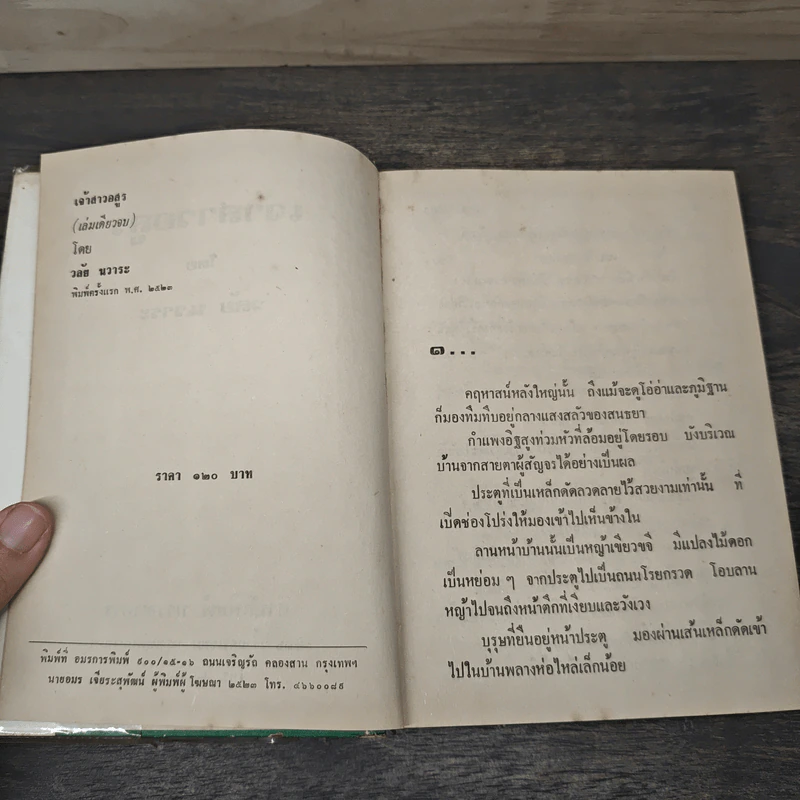 เจ้าสาวอสูร
(เล่มเดียวจบ)
โดย
วลัย นวาระ
พิมพ์ครั้งแรก พ.ศ. ๒๕๒๓
ราคา ๑๒๐ บาท
พิมพ์ที่ อมรการพิมพ์ ๙๐๐/๑๕-๑๖ ถนนเจริญรัถ คลองสาน กรุงเทพฯ
นายอมร เจียระสุพัฒน์ ผู้พิมพ์ผู้โฆษณา ๒๕๒๓ โทร. ๔๖๖๐๐๘๕
๑...
คฤหาสน์หลังใหญ่นั้น ถึงแม้จะดูโอ่อ่าและภูมิฐาน
ก็มองทึมทึบอยู่กลางแสงสลัวของสนธยา
กำแพงอิฐสูงท่วมหัวที่ล้อมอยู่โดยรอบ บังบริเวณ
บ้านจากสายตาผู้สัญจรได้อย่างเป็นผล
ประตูที่เป็นเหล็กดัดลวดลายไว้สวยงามเท่านั้น ที่
เปิดช่องโปร่งให้มองเข้าไปเห็นข้างใน
ลานหน้าบ้านนั้นเป็นหญ้าเขียวขจี มีแปลงไม้ดอก
เป็นหย่อม ๆ จากประตูไปเป็นถนนโรยกรวด โอบลาน
หญ้าไปจนถึงหน้าตึกที่เงียบและวังเวง
บุรุษที่ยืนอยู่หน้าประตู มองผ่านเส้นเหล็กดัดเข้า
ไปในบ้านพลางห่อไหล่เล็กน้อย